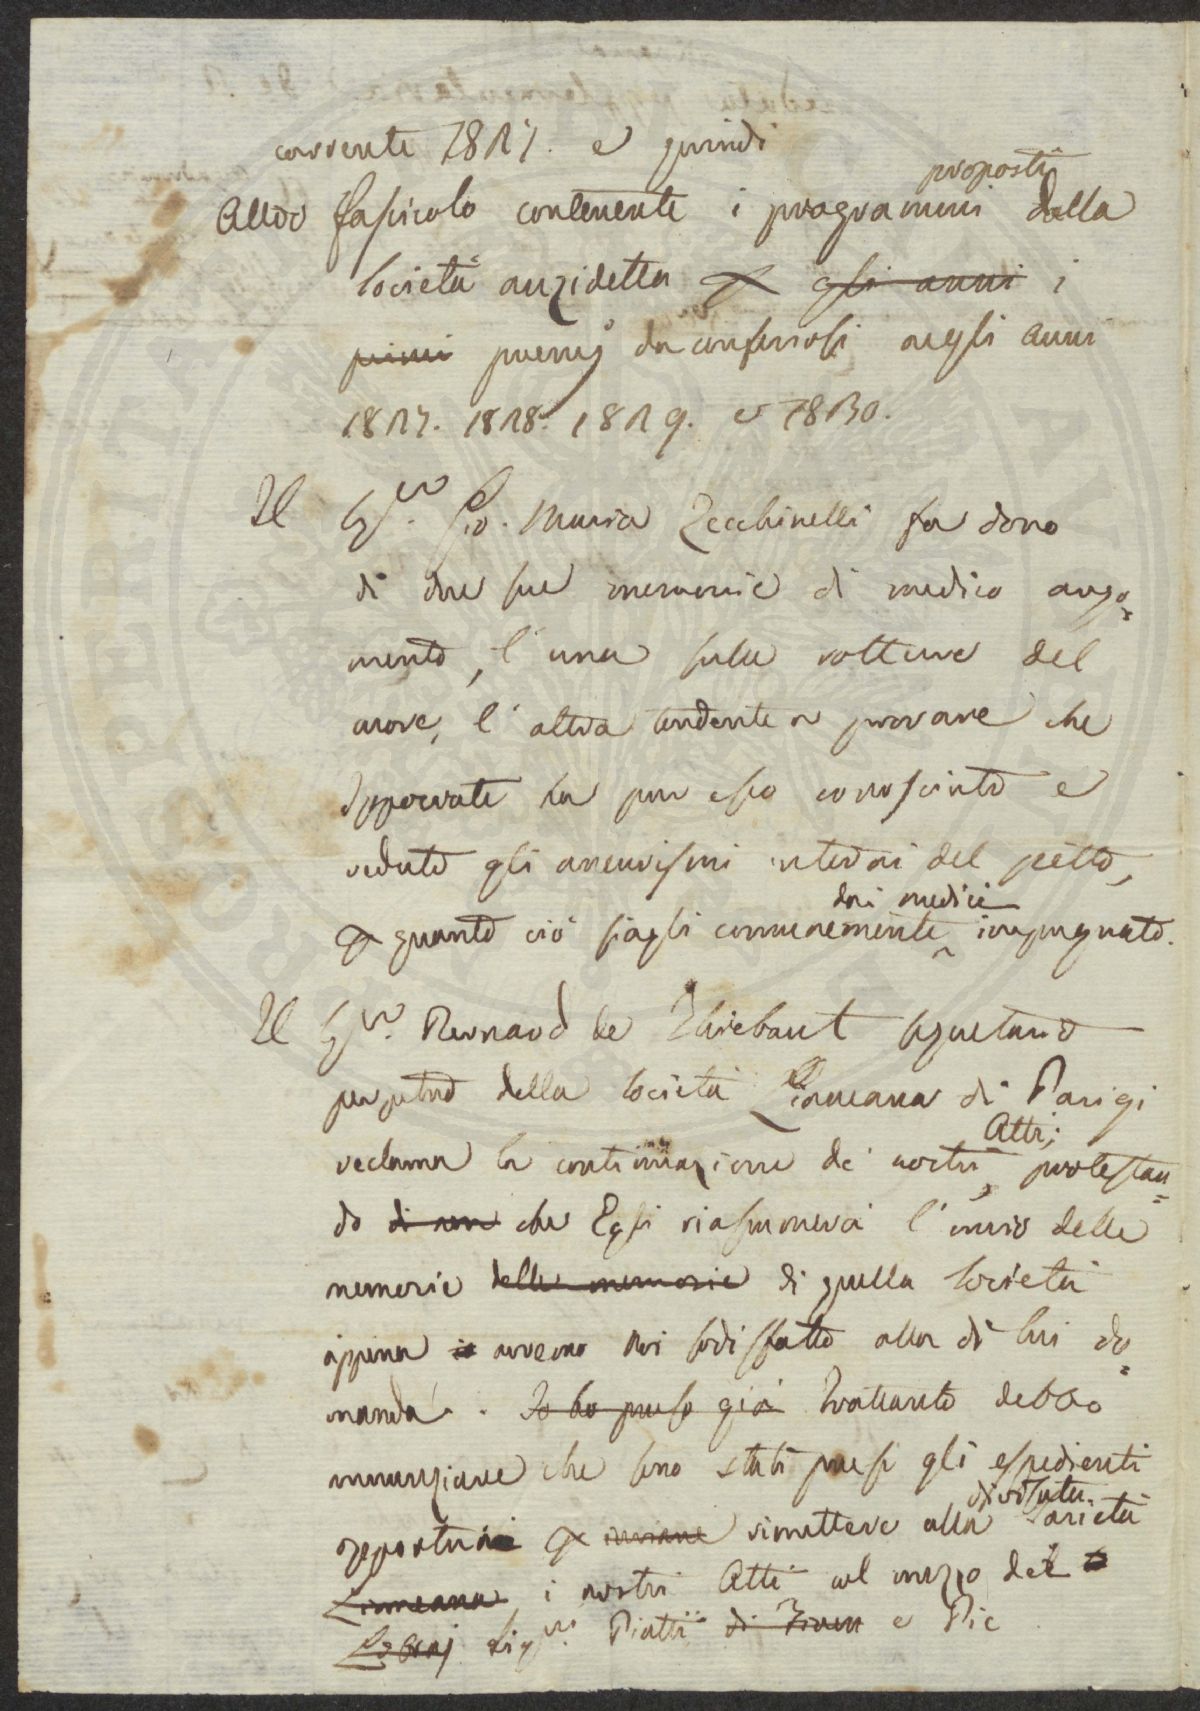 corrente 1817. e quindi
Altro fascicolo contenente i programmi proposti dalla
Società anzidetta p gli anni i
primi premj da conferirsi negli anni
1817. 1818. 1819. e 1820.
Il Sig.r Gio. Maria Zecchinelli fa dono
di due sue memorie di medico argo=
mento, l'una sulle rotture del
cuore, l'altra tendente a provare che
Ippocrate ha pur esso conosciuto e
veduto gli aneurismi interni del petto,
p quanto ciò siagli comunemente dai medici impugnato.
Il Sig.r Bernard de Thiebaut segretario
perpetuo della Società Linneana di Parigi
reclama la continuazione de' nostri Atti; protestan=
do di non che Egli riassumerà l'invio delle
memorie delle memorie di quella Società
appena avremo noi sodisfatto alla di lui do=
manda. Io ho preso già Frattanto debbo
annunziare che sono stati presi gli espedienti
opportuni p inviare rimettere alla divisata Società
Linneana i nostri Atti col mezzo dei
Sig.ri Piatti di e Pic